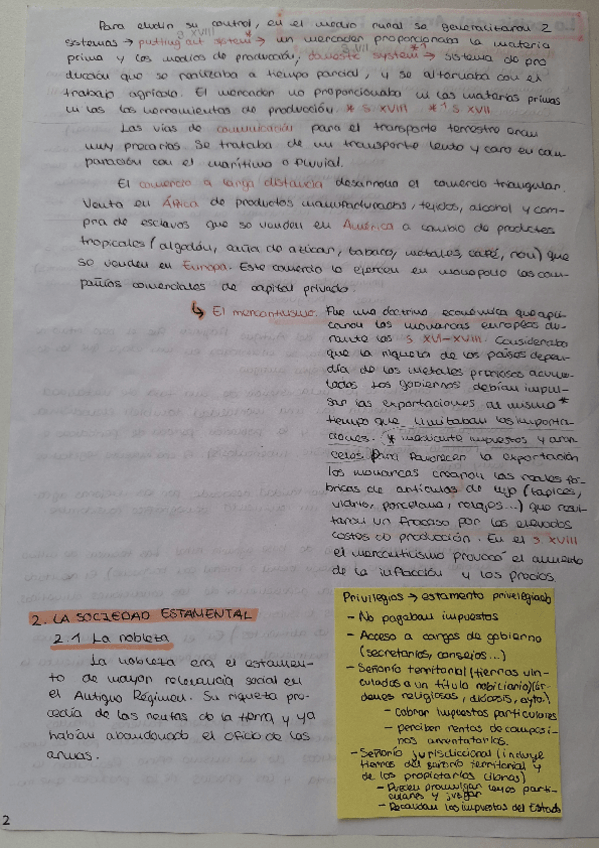 Para eludir su control, en el medio rural se generalizaron 2
sistemas → putting out system* → un mercader proporcionaba la materia
S XVIII
prima y los medios de producción, domestic system*¹ → sistema de pro
S. XVII
ducción que se realizaba a tiempo parcial, y se alternaba con el
trabajo agrícola. El mercader no proporcionaba ni las materias primas
ni las herramientas de producción. * S. XVIII *¹ S. XVII
Las vías de comunicación para el transporte terrestre eran
muy precarias. Se trataba de un transporte lento y caro en com-
paración con el marítimo o fluvial.
El comercio a larga distancia desarrolla el comercio triangular.
Venta en África de productos manufacturados, tejidos, alcohol y com-
pra de esclavos que se venden en América a cambio de productos
tropicales (algodón, caña de azúcar, tabaco, metales, café, ron) que
se venden en Europa. Este comercio lo ejercen en monopolio las com-
pañías comerciales de capital privado.
↳ El mercantilismo. Fue una doctrina económica que apli-
caron los monarcas europeos du-
rante los S. XVI-XVIII. Consideraba
que la riqueza de los países depen-
día de los metales preciosos acumu-
lados. Los gobiernos debían impul-
sar las exportaciones al mismo *
tiempo que limitaban las importa-
ciones. (* mediante impuestos y aran-
celes. Para favorecer la exportación
los monarcas crearon las reales fá-
bricas de artículos de lujo (tapices,
vidrio, porcelana, relojes...) que resul-
taron un fracaso por los elevados
costes de producción. En el S. XVIII
el mercantilismo provocó el aumento
de la inflacción y los precios.
2. LA SOCIEDAD ESTAMENTAL
2.1 La nobleza
La nobleza era el estamen-
to de mayor relevancia social en
el Antiguo Régimen. Su riqueza pro-
cedía de las rentas de la tierra y ya
habían abandonado el oficio de las
armas.
Privilegios → estamento privilegiado
- No pagaban impuestos
- Acceso a cargos de gobierno
(secretarios, consejos...)
- Señorío territorial (tierras vin-
culadas a un título nobiliario) (ór-
denes religiosas, diócesis, ayto.)
- Cobrar impuestos particulares
- perciben rentas de campesi-
nos arrendatarios.
- Señorío jurisdiccional (incluye
tierras del señorío territorial y
de los propietarios libres)
- Pueden promulgar leyes parti-
culares y juzgar
- Recaudan los impuestos del Estado
2